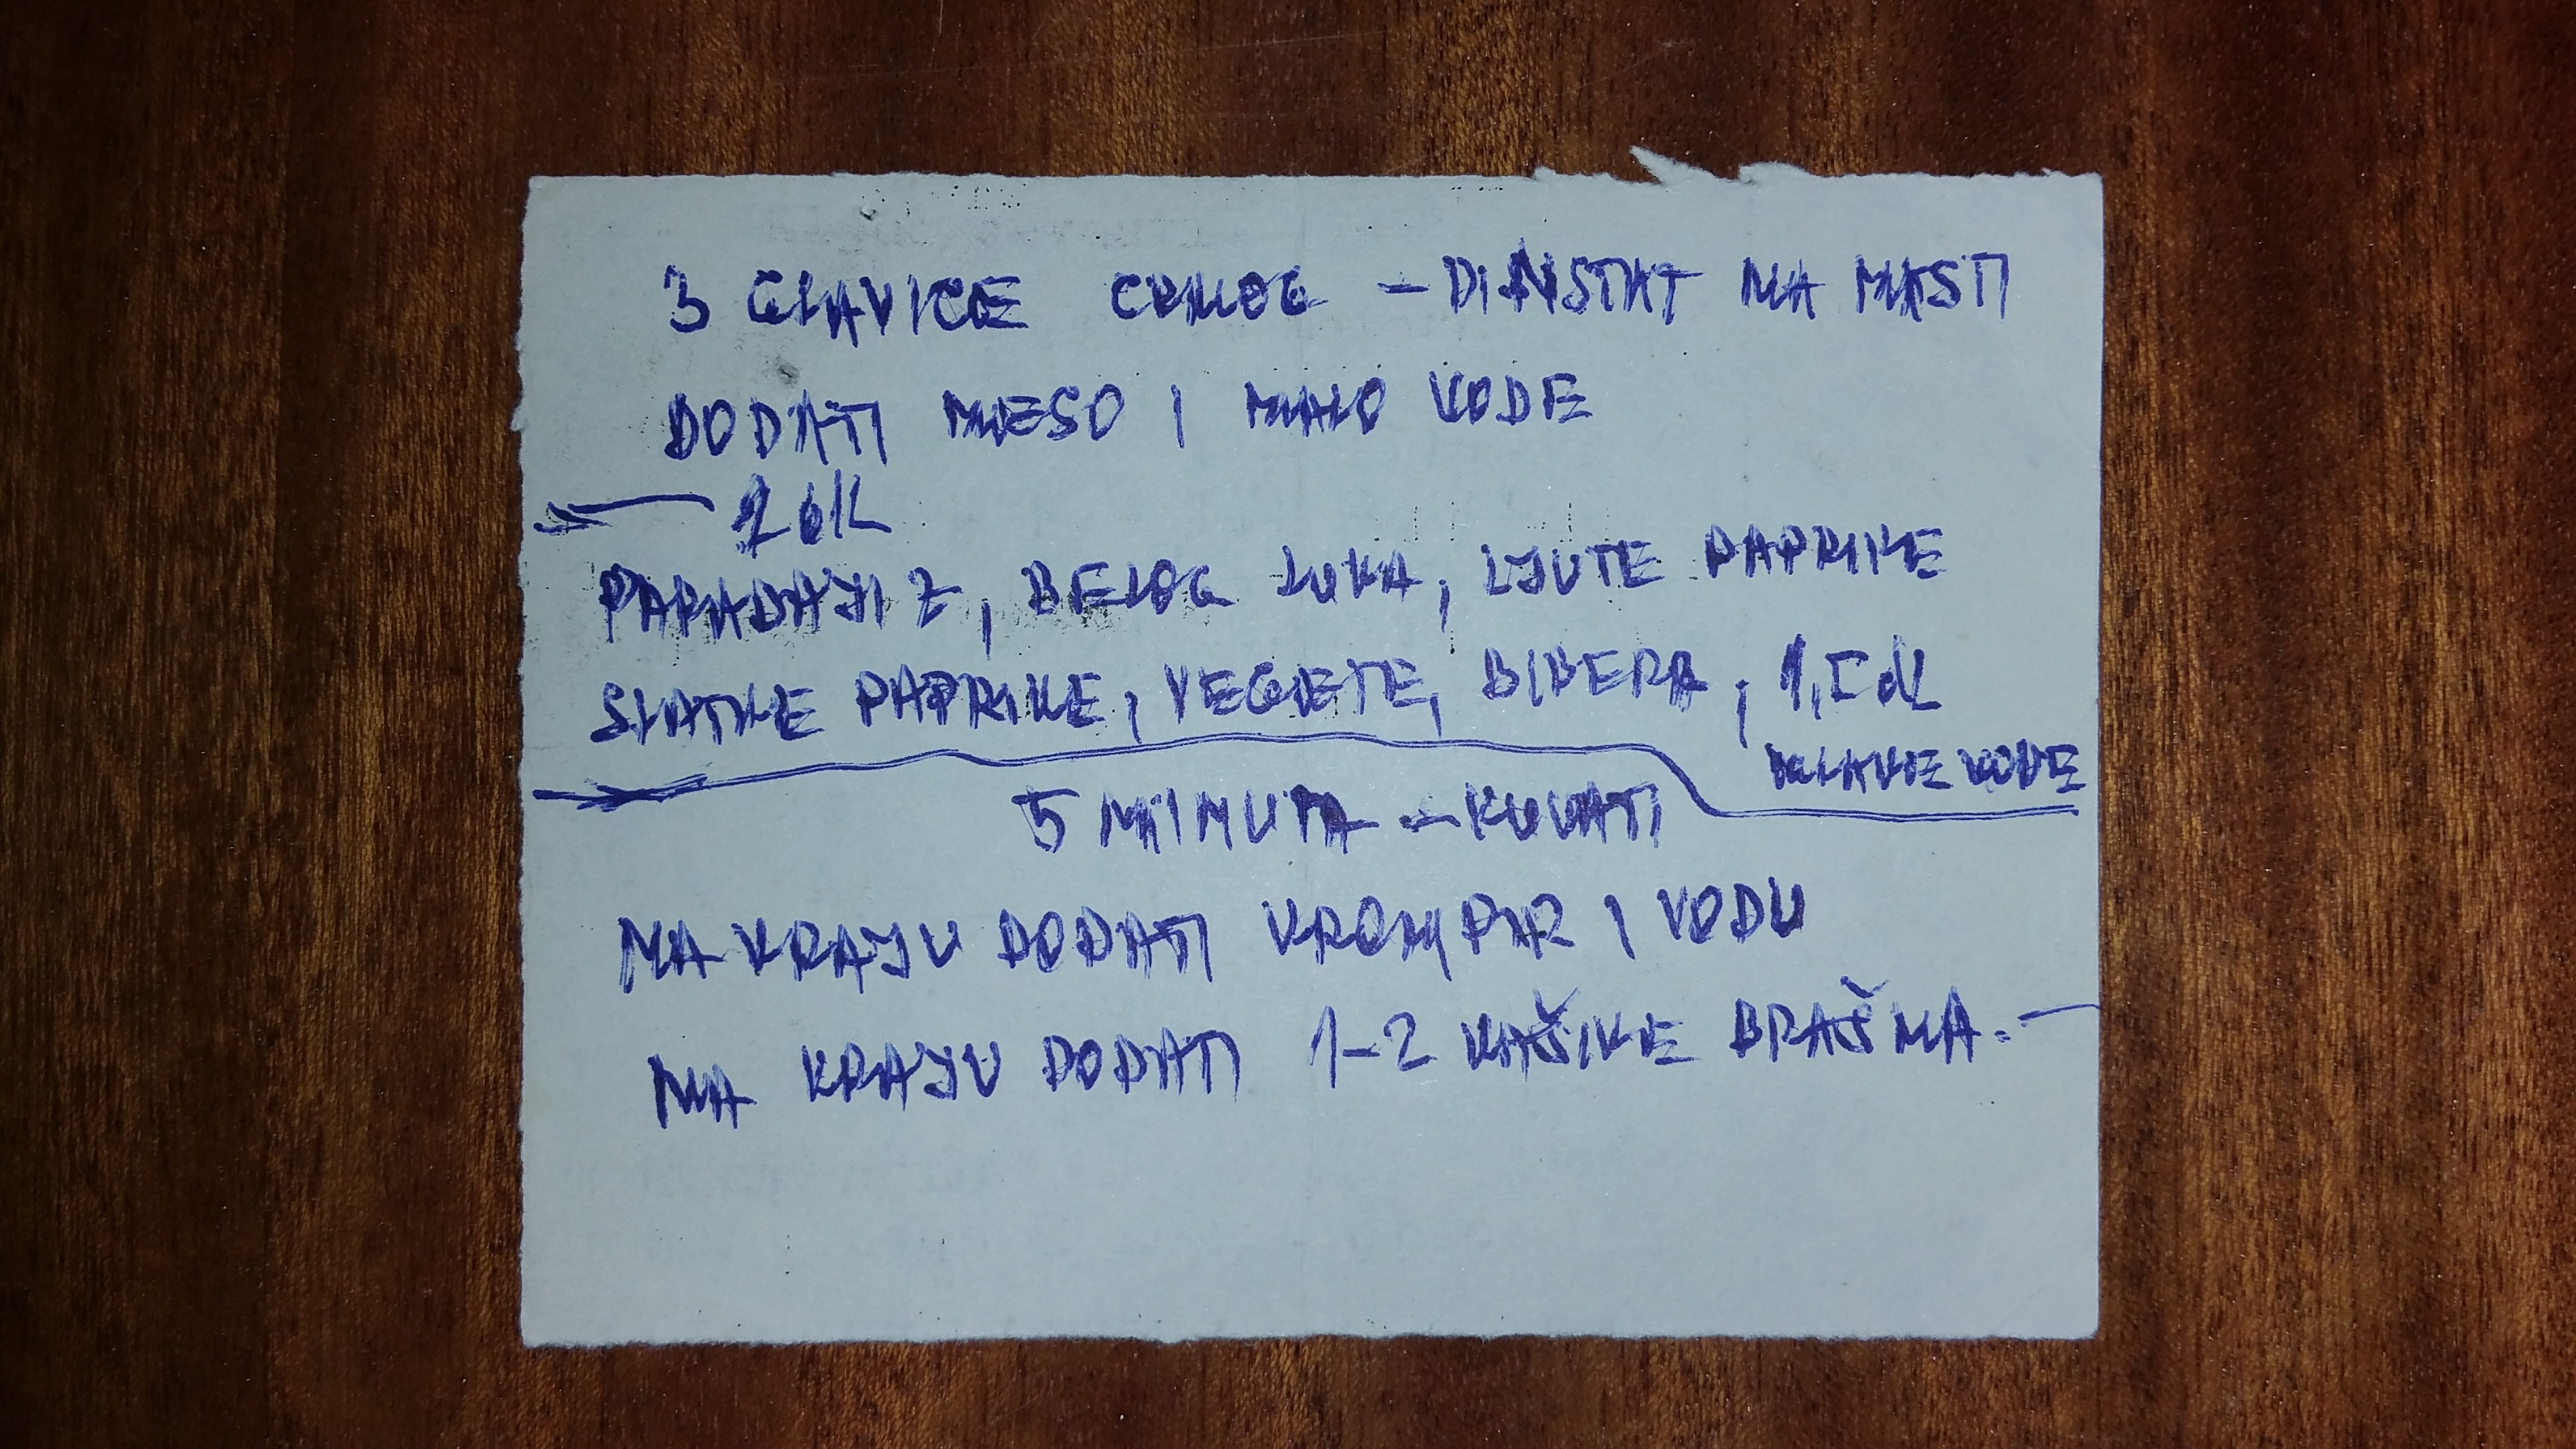 3 GLAVICE CRNOG - DINSTAT NA MASTI
DODATI MESO I MALO VODE
2 DL
BELOG LUKA, LJUTE PAPRIKE
SLATKE PAPRIKE, VEGETE, BIBERA, 1,5 DL
VODE
5 MINUTA - KUVATI
NA KRAJU DODATI KROMPIR I VODU
NA KRAJU DODATI 1-2 KAŠIKE BRAŠNA.-